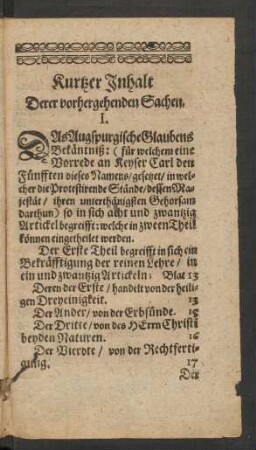 Kurtzer Inhalt
Derer vorhergehenden Sachen.
I.
DAs Augspurgische Glaubens
Bekäntniß: (für welchem eine
Vorrede an Keyser Carl den
Fünfften dieses Namens/gesetzt/ in wel-
cher die Protestirende Stände/dessen Ma-
jestät/ ihren unterthänigsten Gehorsam
darthun) so in sich acht und zwantzig
Artickel begreifft: welche in zween Theil
können eingetheilet werden.
Der Erste Theil begreifft in sich ein
Bekräfftigung der reinen Lehre/ in
ein und zwantzig Artickeln: Blat 13
Deren der Erste/ handelt von der heili-
gen Dreyeinigkeit. 13
Der Ander/ von der Erbsünde. 15
Der Dritte/ von des HErrn Christi
beyden Naturen. 16
Der Vierdte/ von der Rechtferti-
gung. 17
Der